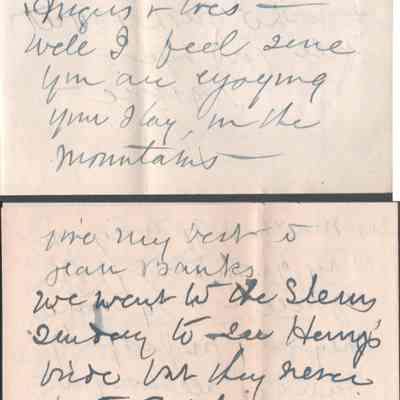 well I feel sure
you are enjoying
your stay in the
Mountains —
my best to
Jean Banks
we went to the Sterns
Sunday to see Henry's
but they never